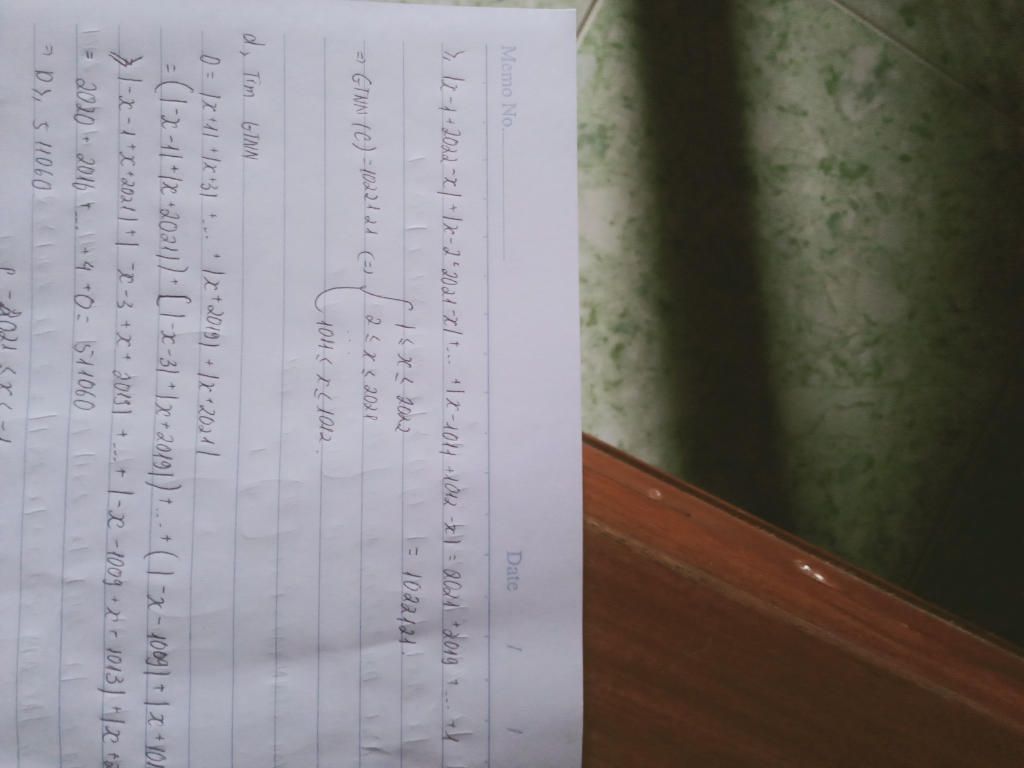 Memo No. Date / /
≥ |x-1+2022-x| + |x-2+2021-x| + ... + |x-1011+1012-x| = 2021+2019+...+1
= 1022121
⇒ GTNN (C) = 1022121 (=) { 1 ≤ x ≤ 2022
2 ≤ x ≤ 2021
1011 ≤ x ≤ 1012.
d, Tìm GTNN
D = |x+1| + |x+3| + ... + |x+2019| + |x+2021|
= (|-x-1| + |x+2021|) + [|-x-3| + |x+2019|) + ... + (|-x-1009| + |x+101
≥ |-x-1+x+2021| + |-x-3+x+2019| + ... + |-x-1009+x+1013| + |x+
= 2020+2016+...+4+0 = 511060
⇒ D ≥ 511060
-2021 ≤ x ≤ -1